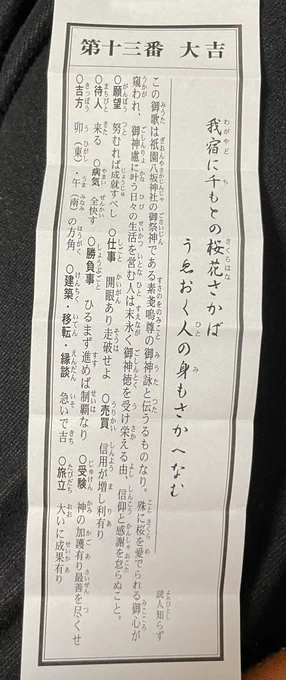 第十三番 大吉
我宿に千もとの桜花さかば
うゑおく人の身もさかへなむ
読人知らず
この御歌は祇園八坂神社の御祭神である素戔嗚尊の御神詠と伝うるものなり。殊に桜を愛でられる御心が
窺われ、御神慮に叶う日々の生活を営む人は末永く御神徳を受け栄える由、信仰と感謝を怠らぬこと。
○願望 努むれば成就すべし ○仕事 開眼あり走破せよ ○売買 信用が増し利有り
○待人 来る ○病気 全快す ○勝負事 ひるまず進めば制覇なり ○受験 神の加護有り最善を尽くせ
○吉方 卯(東)・午(南)の方角 ○建築・移転・縁談 急いで吉 ○旅立 大いに成果有り